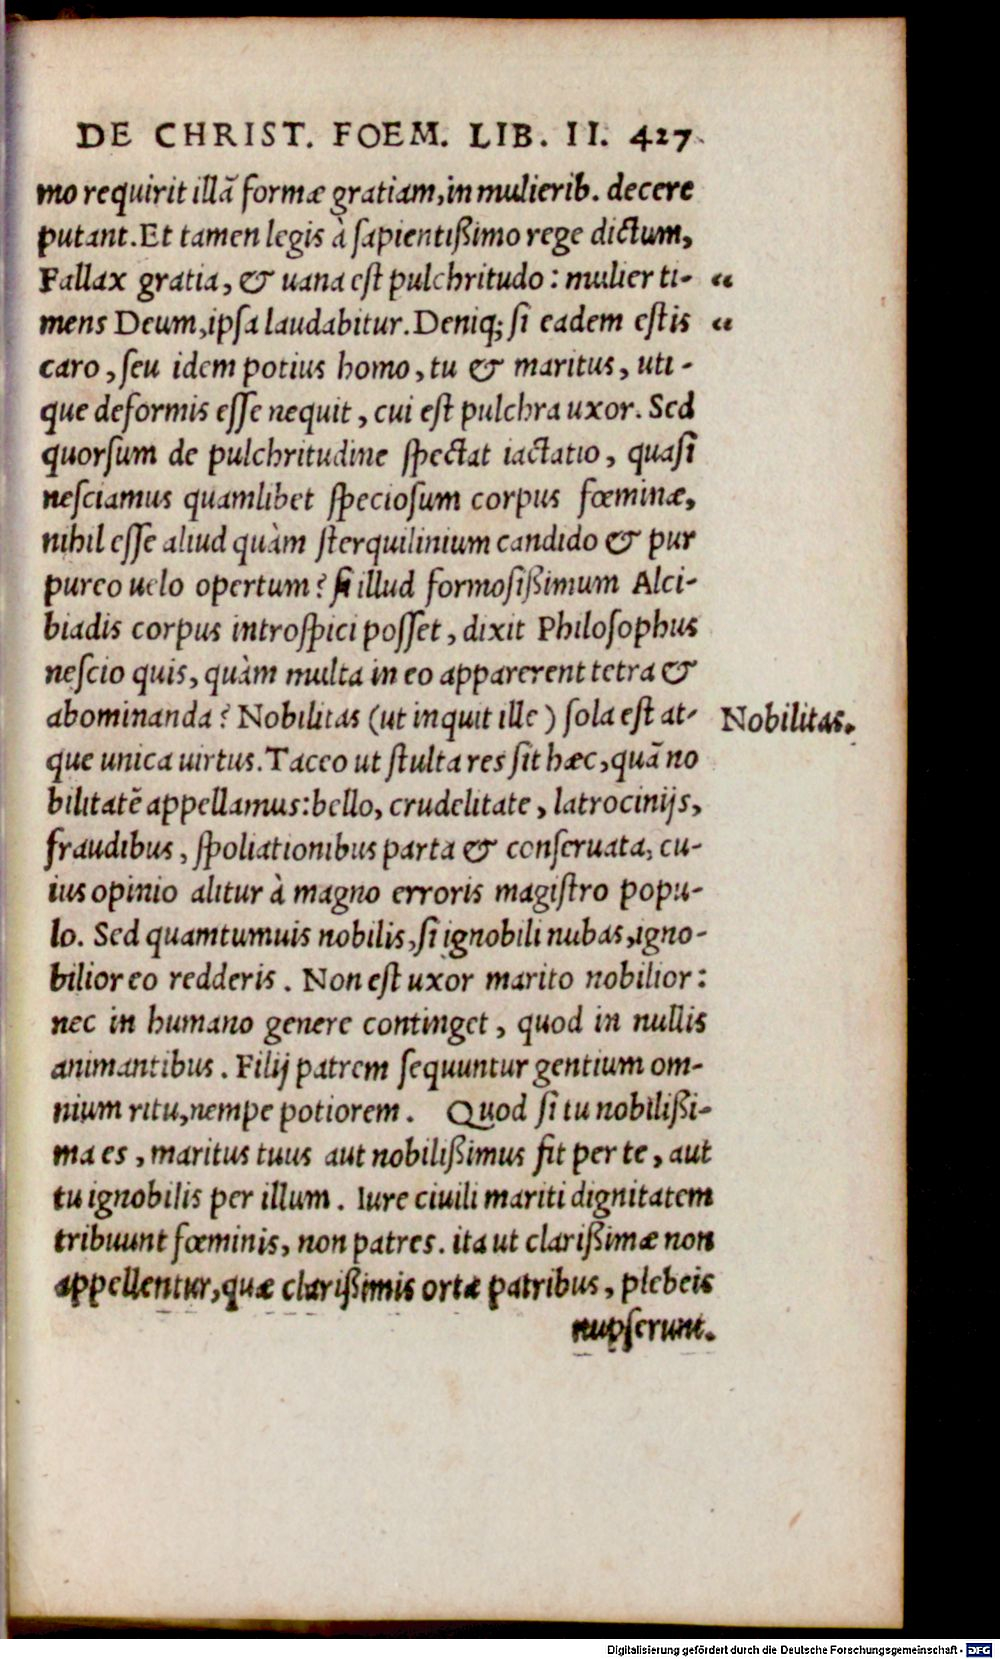 DE CHRIST. FOEM. LIB. II. 427
mo requirit illã formæ gratiam, in mulierib. decere
putant. Et tamen legis à ſapientißimo rege dictum,
Fallax gratia, & uana eſt pulchritudo: mulier ti- “
mens Deum, ipſa laudabitur. Deniq; ſi eadem eſtis “
caro, ſeu idem potius homo, tu & maritus, uti-
que deformis eſſe nequit, cui eſt pulchra uxor. Sed
quorſum de pulchritudine ſpectat iactatio, quaſi
neſciamus quamlibet ſpecioſum corpus fœminæ,
nihil eſſe aliud quàm ſterquilinium candido & pur
pureo uelo opertum? ſi illud formoſißimum Alci-
biadis corpus introſpici poſſet, dixit Philoſophus
neſcio quis, quàm multa in eo apparerent tetra &
abominanda? Nobilitas (ut inquit ille) ſola eſt at-
Nobilitas.
que unica uirtus. Taceo ut ſtulta res ſit hæc, quã no
bilitatẽ appellamus: bello, crudelitate, latrocinijs,
fraudibus, ſpoliationibus parta & conſeruata, cu-
ius opinio alitur à magno erroris magiſtro popu-
lo. Sed quamtumuis nobilis, ſi ignobili nubas, igno-
bilior eo redderis. Non eſt uxor marito nobilior:
nec in humano genere continget, quod in nullis
animantibus. Filij patrem ſequuntur gentium om-
nium ritu, nempe potiorem. Quod ſi tu nobilißi-
ma es, maritus tuus aut nobilißimus fit per te, aut
tu ignobilis per illum. Iure ciuili mariti dignitatem
tribuunt fœminis, non patres. ita ut clarißimæ non
appellentur, quæ clarißimis ortæ patribus, plebeis
nupſerunt.
Digitalisierung gefördert durch die Deutsche Forschungsgemeinschaft - DFG